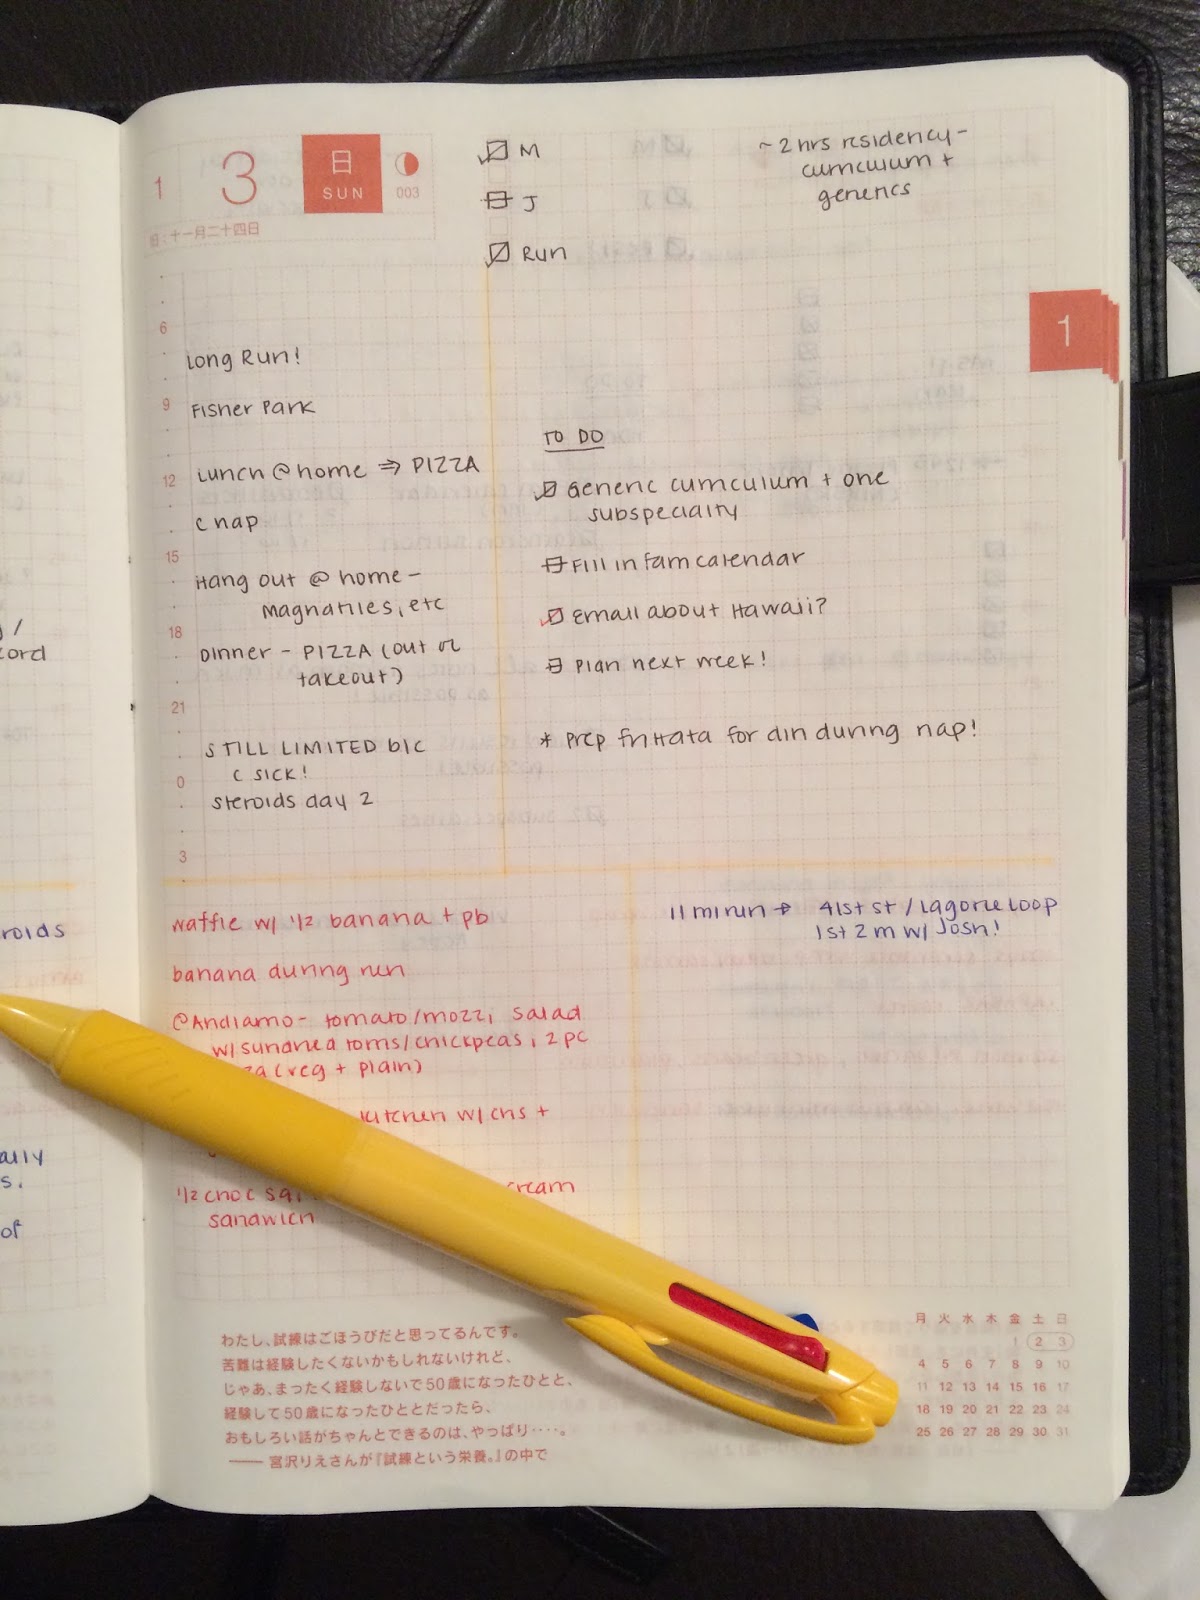 1 3 日 SUN 003
旧:十一月二十四日
M
J
Run
~2 hrs residency-
curriculum +
generics
1
6
Long Run!
9
Fisher Park
12
Lunch @ home ⇒ PIZZA
C nap
15
Hang out @ home –
magnatiles, etc
18
Dinner – PIZZA (out or
takeout)
21
STILL LIMITED b/c
0
C SICK!
Steroids day 2
3
TO DO
Generic curriculum + one
subspecialty
Fill in fam calendar
Email about Hawaii?
Plan next week!
* Prep frittata for din during nap!
waffle w/ 1/2 banana + pb
banana during run
@Andiamo- tomato/mozz, salad
w/ sundried toms/chickpeas, 2 pc
(reg + plain)
kitchen w/ chs +
1/2 choc
cream
sandwich
11 mi run → 41st st / Lagorce Loop
1st 2 m w/ Josh!
cord
roids
ally
s.
of
わたし、試練はごほうびだと思ってるんです。
苦難は経験したくないかもしれないけれど、
じゃあ、まったく経験しないで50歳になったひとと、
経験して50歳になったひととだったら、
おもしろい話がちゃんとできるのは、やっぱり‥‥。
—— 宮沢りえさんが『試練という栄養。』の中で
月 火 水 木 金 土 日
1 2 3
4 5 6 7 8 9 10
11 12 13 14 15 16 17
18 19 20 21 22 23 24
25 26 27 28 29 30 31